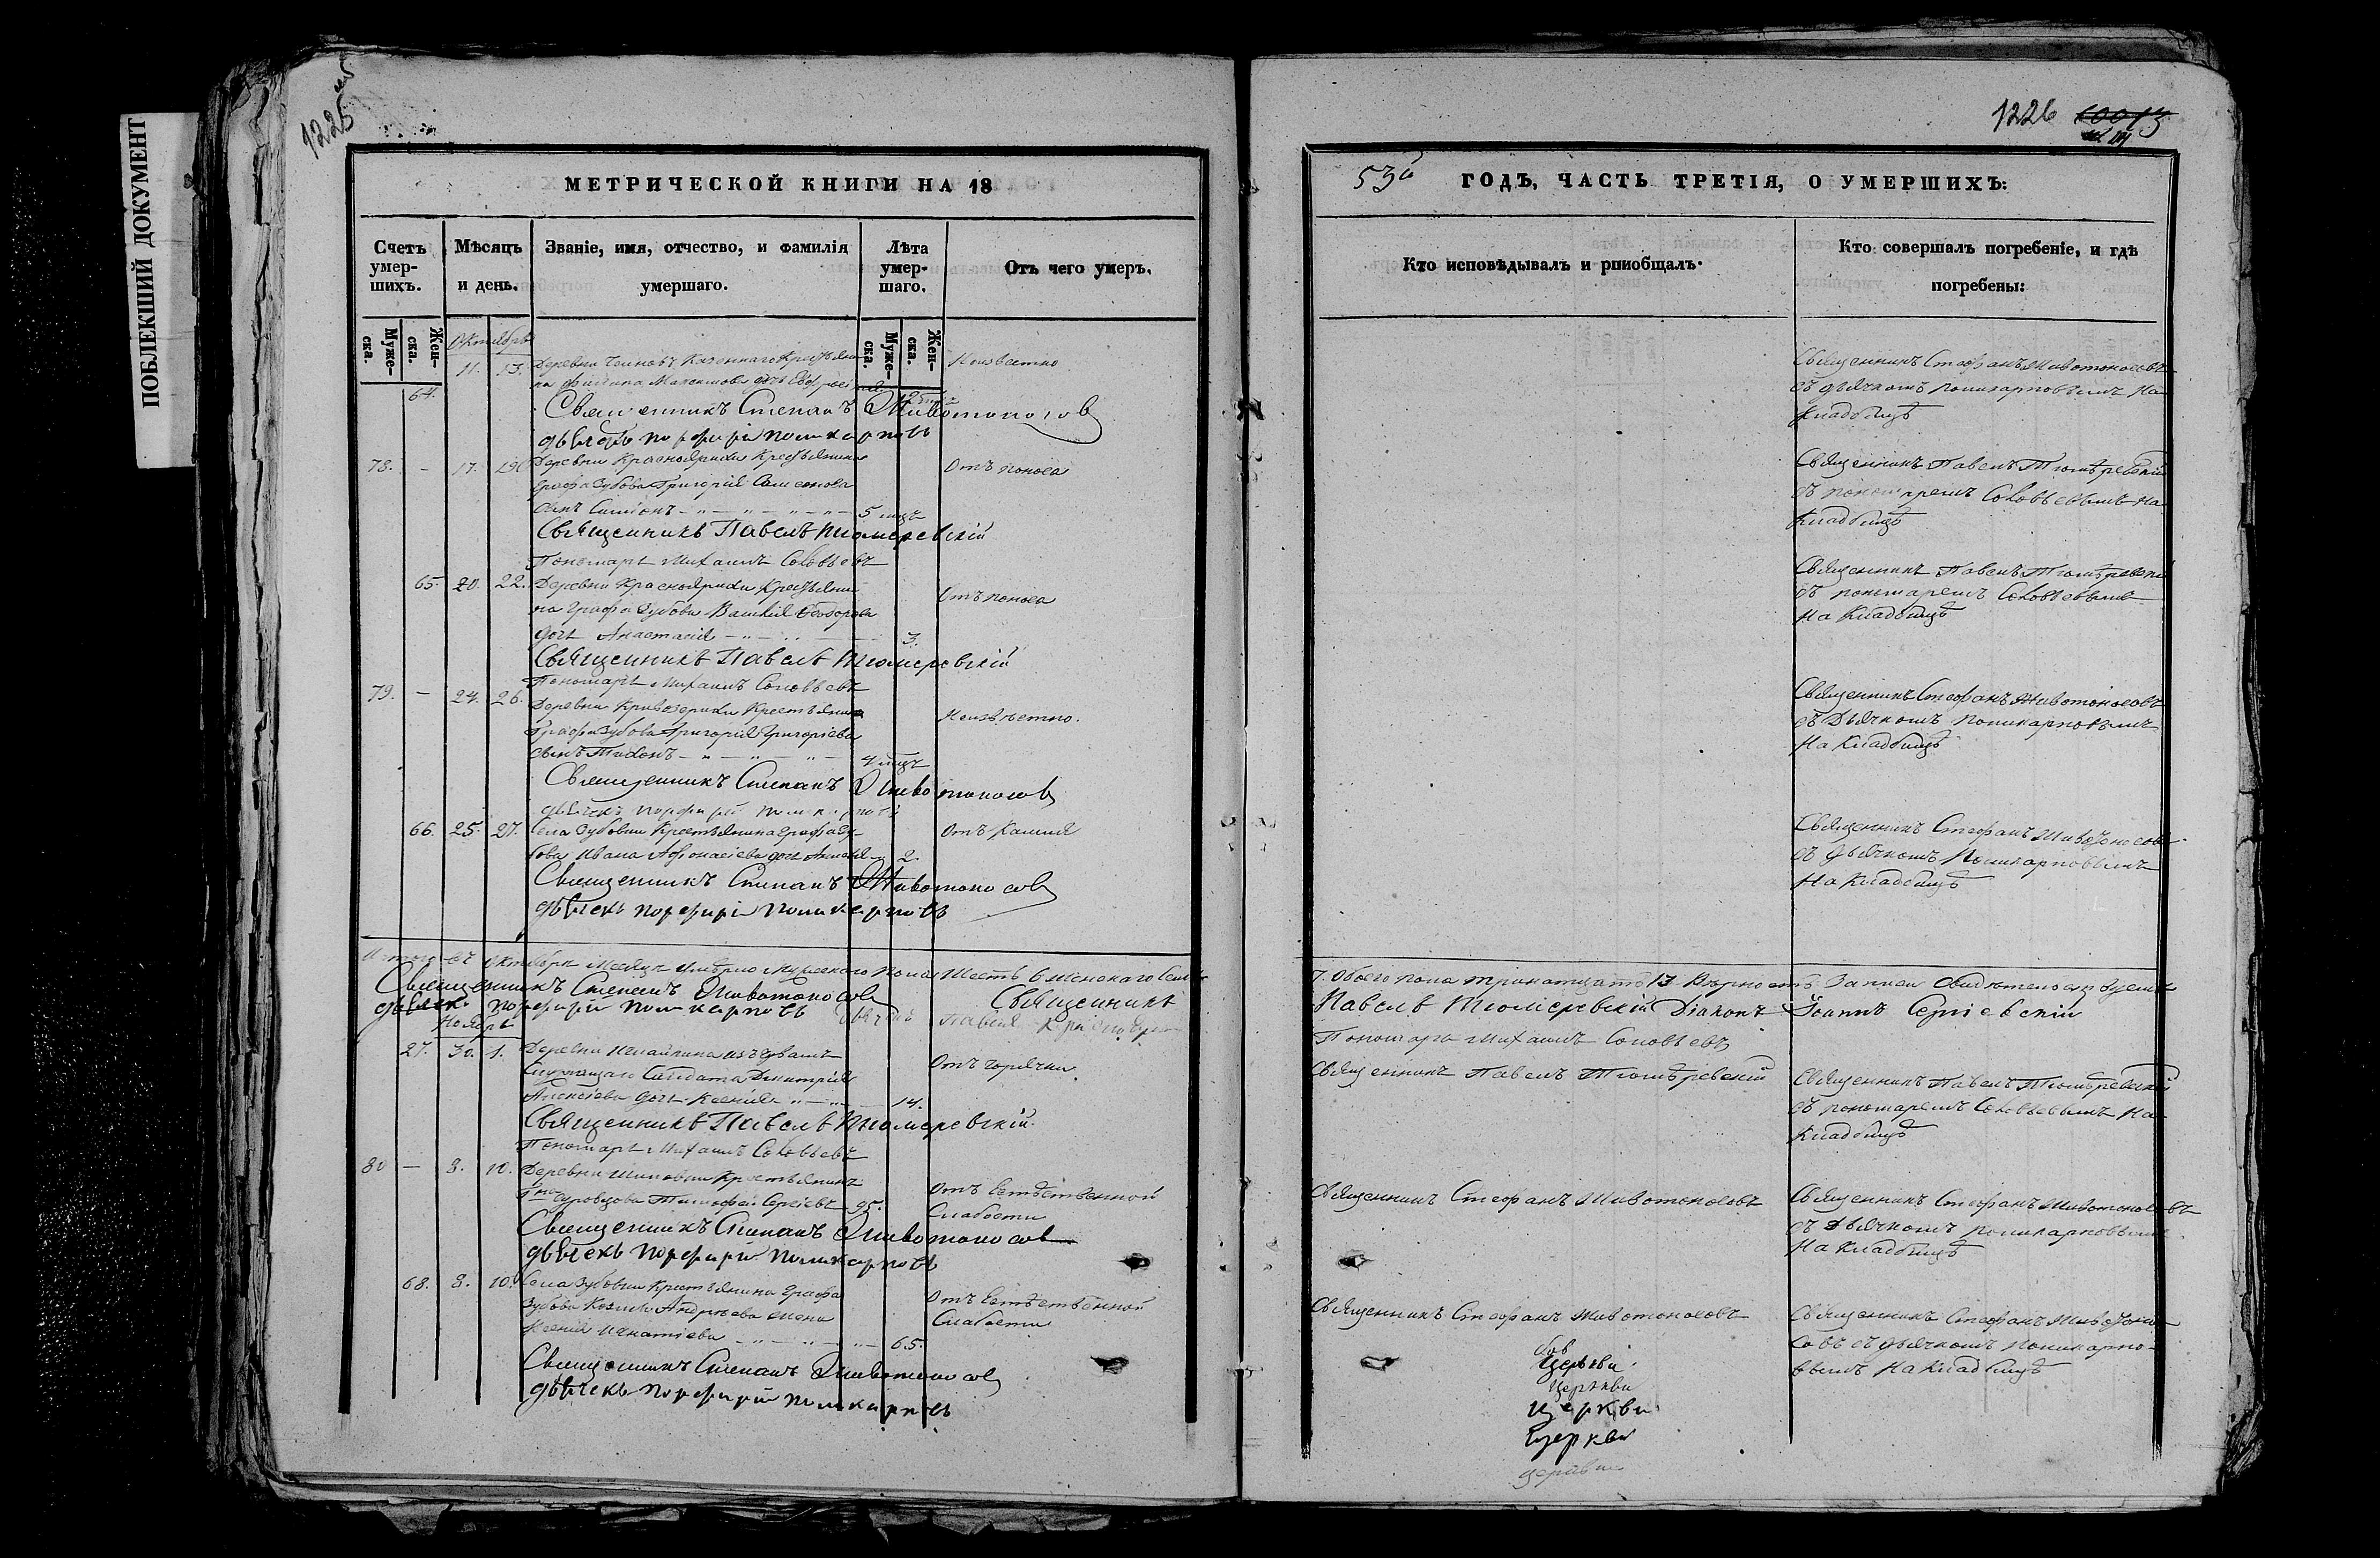 ПОБЛЕКШИЙ ДОКУМЕНТ
1225
МЕТРИЧЕСКОЙ КНИГИ НА 18
Счетъ умер- шихъ.
Мѣсяцъ и день.
Званіе, имя, отчество, и фамилія умершаго.
Лѣта умер- шаго.
Отъ чего умеръ.
Муже- ска.
Жен- ска.
Муже- ска
Жен- ска.
Октябрь
64. 11. 13. Деревни Казеннаго Крестьяни-
на Филипа Максимова дочь
Неизвестно
Священникъ Степанъ Животоносов
дьячекъ порфирій поликарповъ
78. - 17. 19. Деревни Красноярихи Крестьянина
Графа Зубова Григорія Семенова
сынъ Симіонъ 5 мцъ
Отъ поноса
Священникъ Павелъ Тюмеревскій
Пономарь Михаилъ Соловьевъ
65. 20. 22. Деревни Красноярихи Крестьяни
на Графа Зубова Василія Ѳеодорова
дочь Анастасія 3.
Отъ поноса
Священникъ Павелъ Тюмеревскій
Пономарь Михаилъ Соловьевъ
79. - 24. 26. Деревни Кривозерихи Крестьянина
Графа Зубова Григорія Григоріева
сынъ Тихонъ 4 мцъ
Неизвѣстно.
Священникъ Степанъ Животоносов
дьячекъ порфирій поликарповъ
66. 25. 27. Села Зубовки Крестьянина Графа Зу-
бова Ивана Афонасіева дочь 2.
Отъ Кашля
Священникъ Степанъ Животоносов
дьячекъ порфирій поликарповъ
Итого въ Октябрѣ Месяцѣ умерло Мужескаго пола Шесть 6 женскаго Семь
Священникъ Степанъ Животоносов Священникъ
дьячек порфирій поликарповъ
Ноябрь
27. 30. 1. Деревни
Служащаго Салдата Димитрія
Алексіева дочь Ксенія 14.
Отъ горячки
Священникъ Павелъ Тюмеревскій
Пономарь Михаилъ Соловьевъ
80 - 8. 10. Деревни Крестьянинъ
Гна Тимофей Сергіевъ 95.
Отъ Естественной
Слабости
Священникъ Степанъ Животоносов
дьячекъ порфирій поликарповъ
68. 8. 10. Села Зубовки Крестьянина Графа
Зубова Козмы Андреева жена
Ксенія Игнатіева 65.
Отъ Естественной
Слабости
Священникъ Степанъ Животоносов
дьячекъ порфирій поликарповъ
1226
53й ГОДЪ, ЧАСТЬ ТРЕТІЯ, О УМЕРШИХЪ:
Кто исповѣдывалъ и рпиобщалъ.
Кто совершалъ погребеніе, и гдѣ погребены:
Священникъ Стефанъ Животоносовъ
съ дьячкомъ поликарповымъ на
кладбищѣ
Священникъ Павелъ Тюмѣревскій
съ пономаремъ Соловьевымъ на
кладбищѣ
Священникъ Павелъ Тюмѣревскій
съ пономаремъ Соловьевымъ
на кладбищѣ
Священникъ Стефанъ Животоносовъ
съ Дьячкомъ поликарповымъ
на кладбищѣ
Священникъ Стефанъ Животоносовъ
съ дьячкомъ Поликарповымъ
на кладбищѣ
7. Обоего пола тринатцать 13
Павелъ Тюмеревскій Діаконъ Іоаннъ Сергіевскій
Пономарь Михаилъ Соловьевъ
Священникъ Павелъ Тюмѣревскій
Священникъ Павелъ Тюмѣревскій
съ пономаремъ Соловьевымъ на
кладбищѣ
Священникъ Стефанъ Животоносовъ
Священникъ Стефанъ Животоносовъ
съ Дьячкомъ поликарповымъ
на кладбищѣ
Священникъ Стефанъ Животоносовъ
Священникъ Стефанъ Животоно-
совъ съ дьячкомъ поликарпо-
вымъ на кладбищѣ
Церкви
церкви
церкви
церкви
церкви